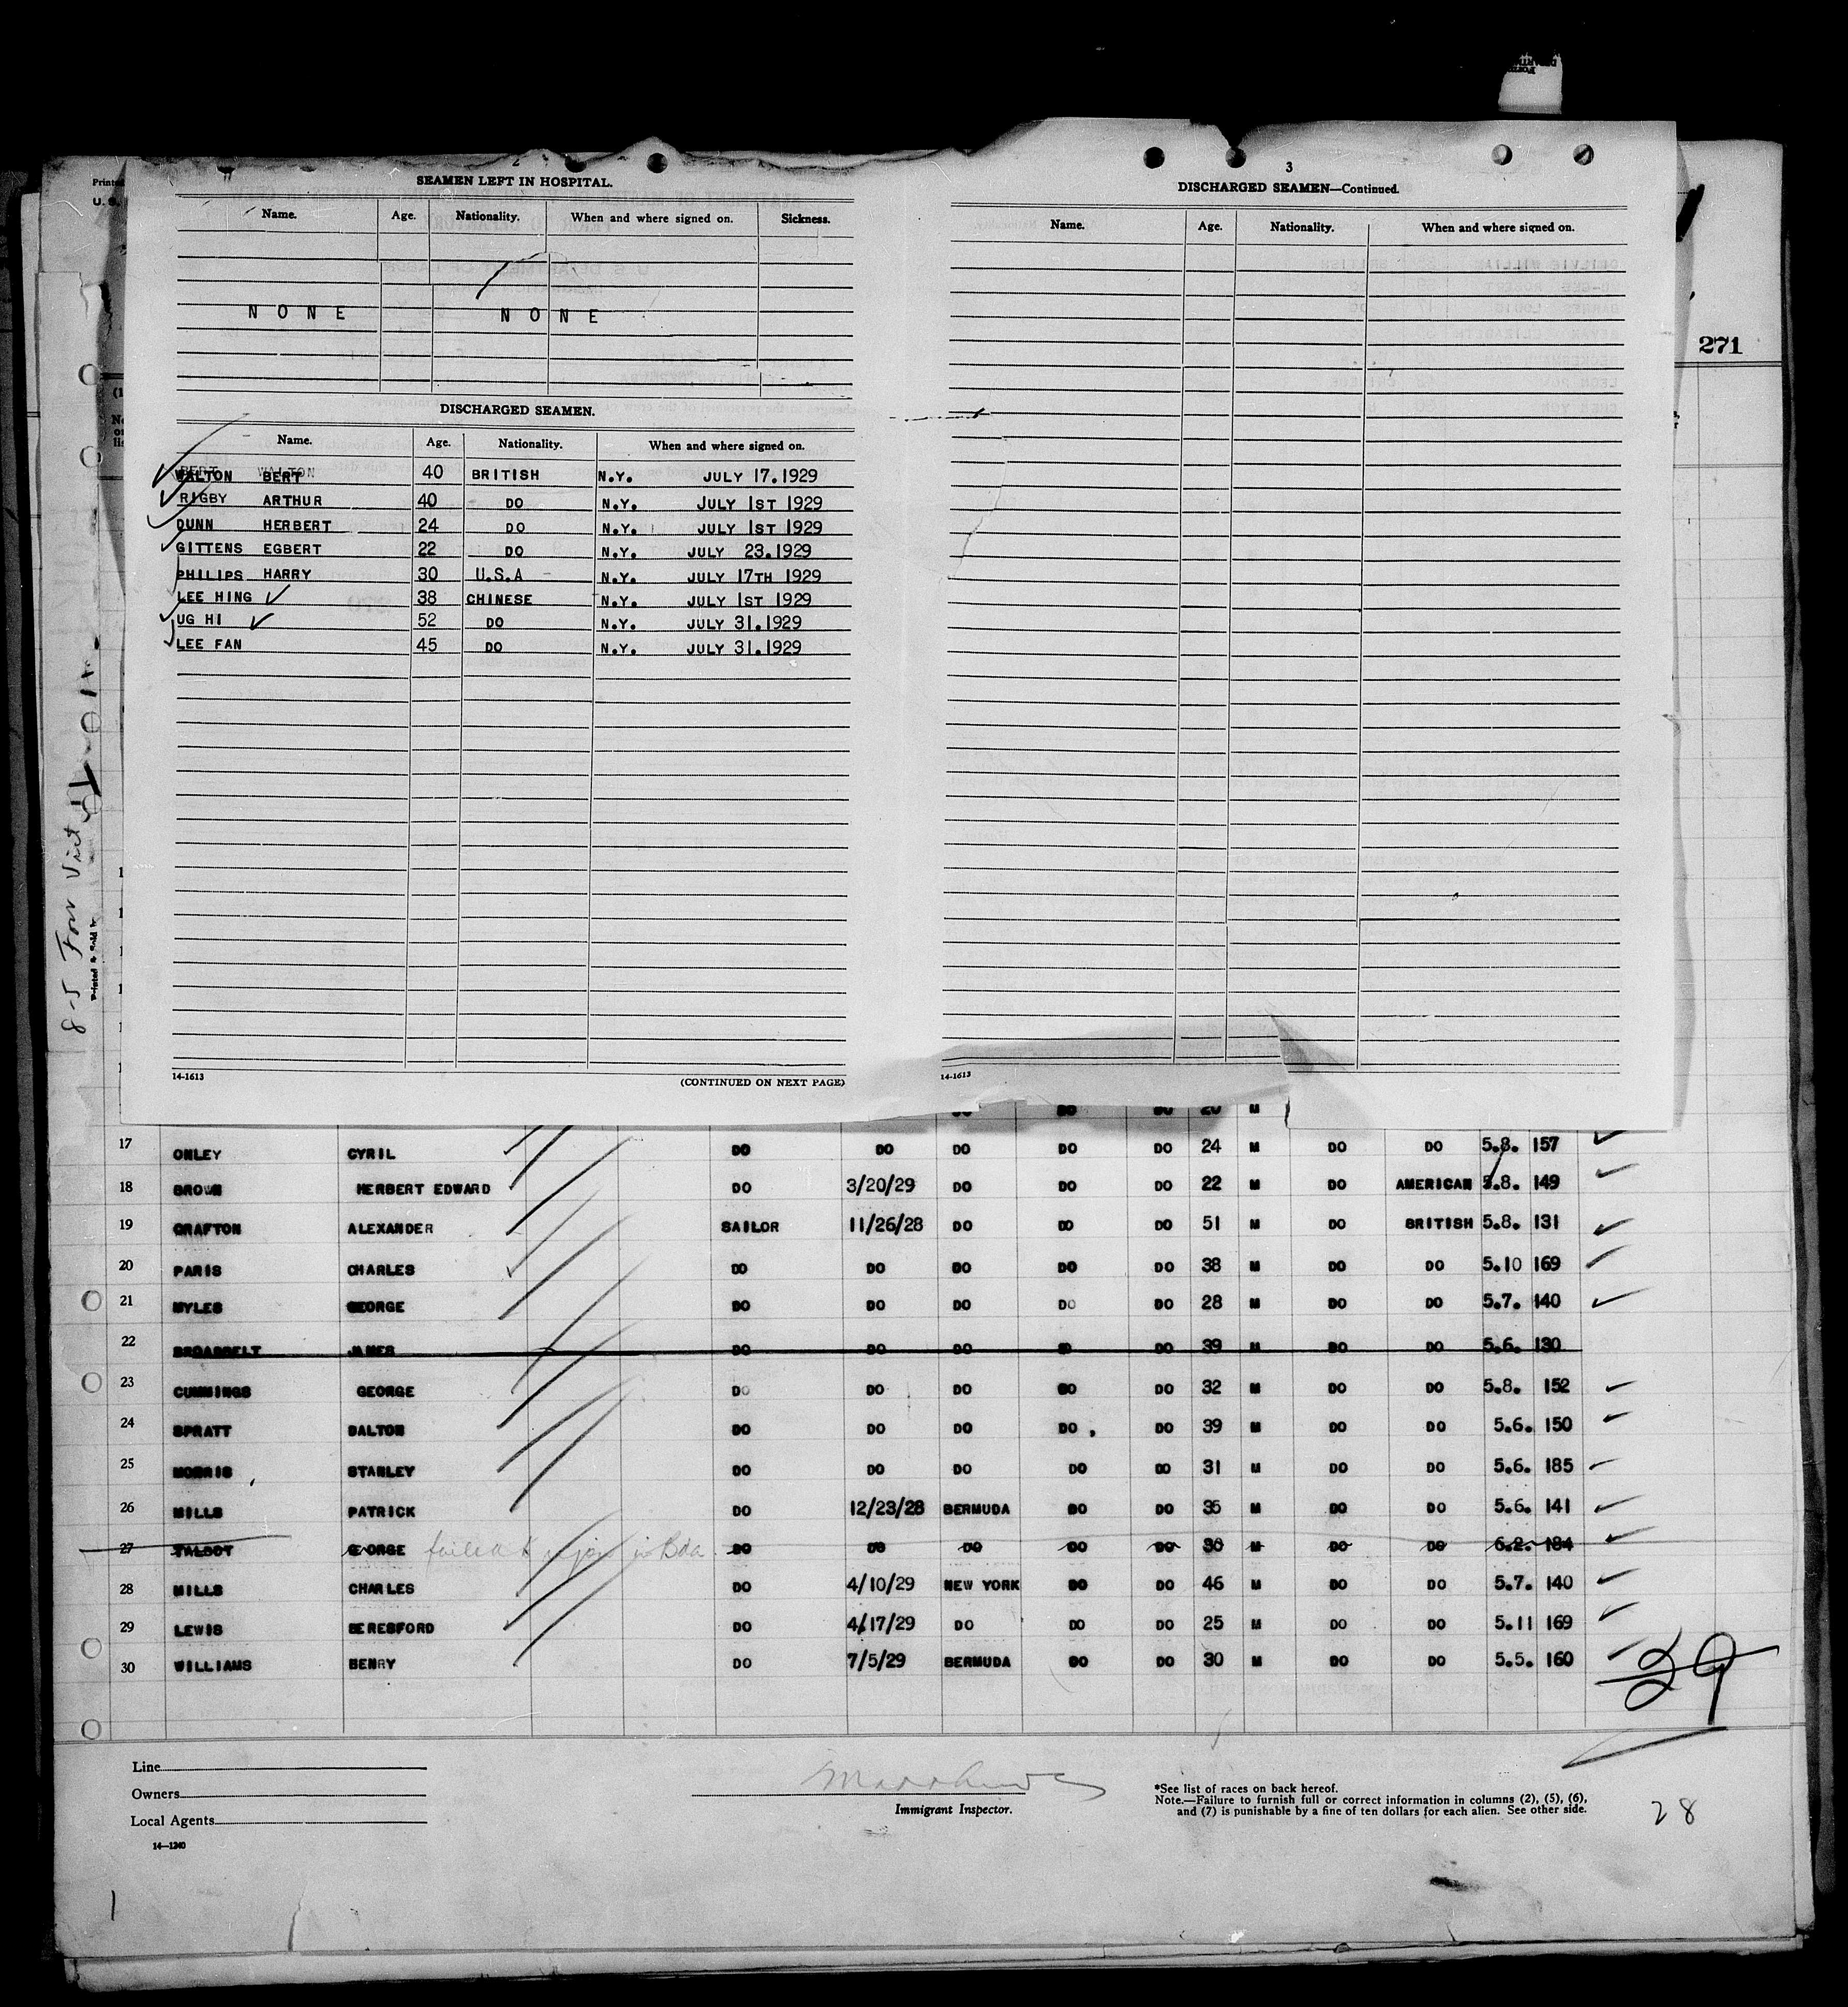 2
SEAMEN LEFT IN HOSPITAL.
Name. Age. Nationality. When and where signed on. Sickness.
NONE NONE
DISCHARGED SEAMEN.
Name. Age. Nationality. When and where signed on.
BERT WALTON
WALTON BERT 40 BRITISH N.Y. JULY 17.1929
RIGBY ARTHUR 40 DO N.Y. JULY 1ST 1929
DUNN HERBERT 24 DO N.Y. JULY 1ST 1929
GITTENS EGBERT 22 DO N.Y. JULY 23.1929
PHILIPS HARRY 30 U.S.A - N.Y. JULY 17TH 1929
LEE HING 38 CHINESE N.Y. JULY 1ST 1929
UG HI 52 DO N.Y. JULY 31.1929
LEE FAN 45 DO N.Y. JULY 31.1929
14-1613 (CONTINUED ON NEXT PAGE)
3
DISCHARGED SEAMEN—Continued.
Name. Age. Nationality. When and where signed on.
14-1613
Printed
U. S.
271
8-5 For Visit
Printed & Sold by
DO DO DO 20 M
17 ONLEY CYRIL DO DO DO DO DO 24 M DO DO 5.8. 157
18 BROWN HERBERT EDWARD DO 3/20/29 DO DO DO 22 M DO AMERICAN 5.8. 149
19 GRAFTON ALEXANDER SAILOR 11/26/28 DO DO DO 51 M DO BRITISH 5.8. 131
20 PARIS CHARLES DO DO DO DO DO 38 M DO DO 5.10 169
21 MYLES GEORGE DO DO DO DO DO 28 M DO DO 5.7. 140
22 BROADBELT JAMES DO DO DO DO DO 39 M DO DO 5.6. 130
23 CUMMINGS GEORGE DO DO DO DO DO 32 M DO DO 5.8. 152
24 SPRATT DALTON DO DO DO DO, DO 39 M DO DO 5.6. 150
25 MORRIS STANLEY DO DO DO DO DO 31 M DO DO 5.6. 185
26 MILLS PATRICK DO 12/23/28 BERMUDA DO DO 35 M DO DO 5.6. 141
27 TALBOT GEORGE failed to rejoin in Bda DO DO DO DO DO 30 M DO DO 6.2. 184
28 MILLS CHARLES DO 4/10/29 NEW YORK DO DO 46 M DO DO 5.7. 140
29 LEWIS BERESFORD DO 4/17/29 DO DO DO 25 M DO DO 5.11 169
30 WILLIAMS HENRY DO 7/5/29 BERMUDA DO DO 30 M DO DO 5.5. 160
29
Line
Owners
Local Agents
14—1240
Matthews
Immigrant Inspector.
*See list of races on back hereof.
Note.—Failure to furnish full or correct information in columns (2), (5), (6),
and (7) is punishable by a fine of ten dollars for each alien. See other side.
28